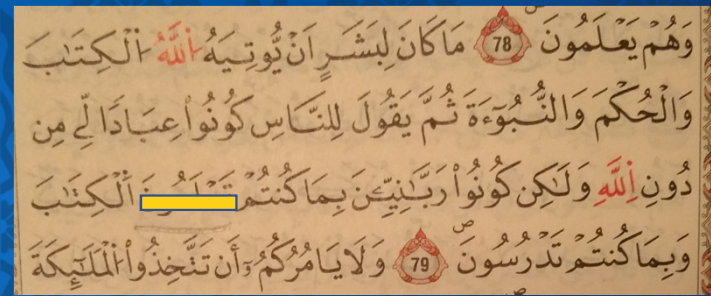 وَهُمْ يَعْلَمُونَ 78 مَا كَانَ لِبَشَرٍ اَنْ يُّوتِيَهُ اُللَّهُ اُلْكِتَٰبَ
وَالْحُكْمَ وَالنُّبُوٓءَةَ ثُمَّ يَقُولَ لِلنَّاسِ كُونُواْ عِبَادًا لِّے مِن
دُونِ اِللَّهِ وَلَٰكِن كُونُواْ رَبَّٰنِيِّـۧنَ بِمَا كُنتُمْ اَلْكِتَٰبَ
وَبِمَا كُنتُمْ تَدْرُسُونَ 79 وَلَا يَامُرُكُمُۥٓ أَن تَتَّخِذُواْ اُلْمَلَٰٓئِكَةَ